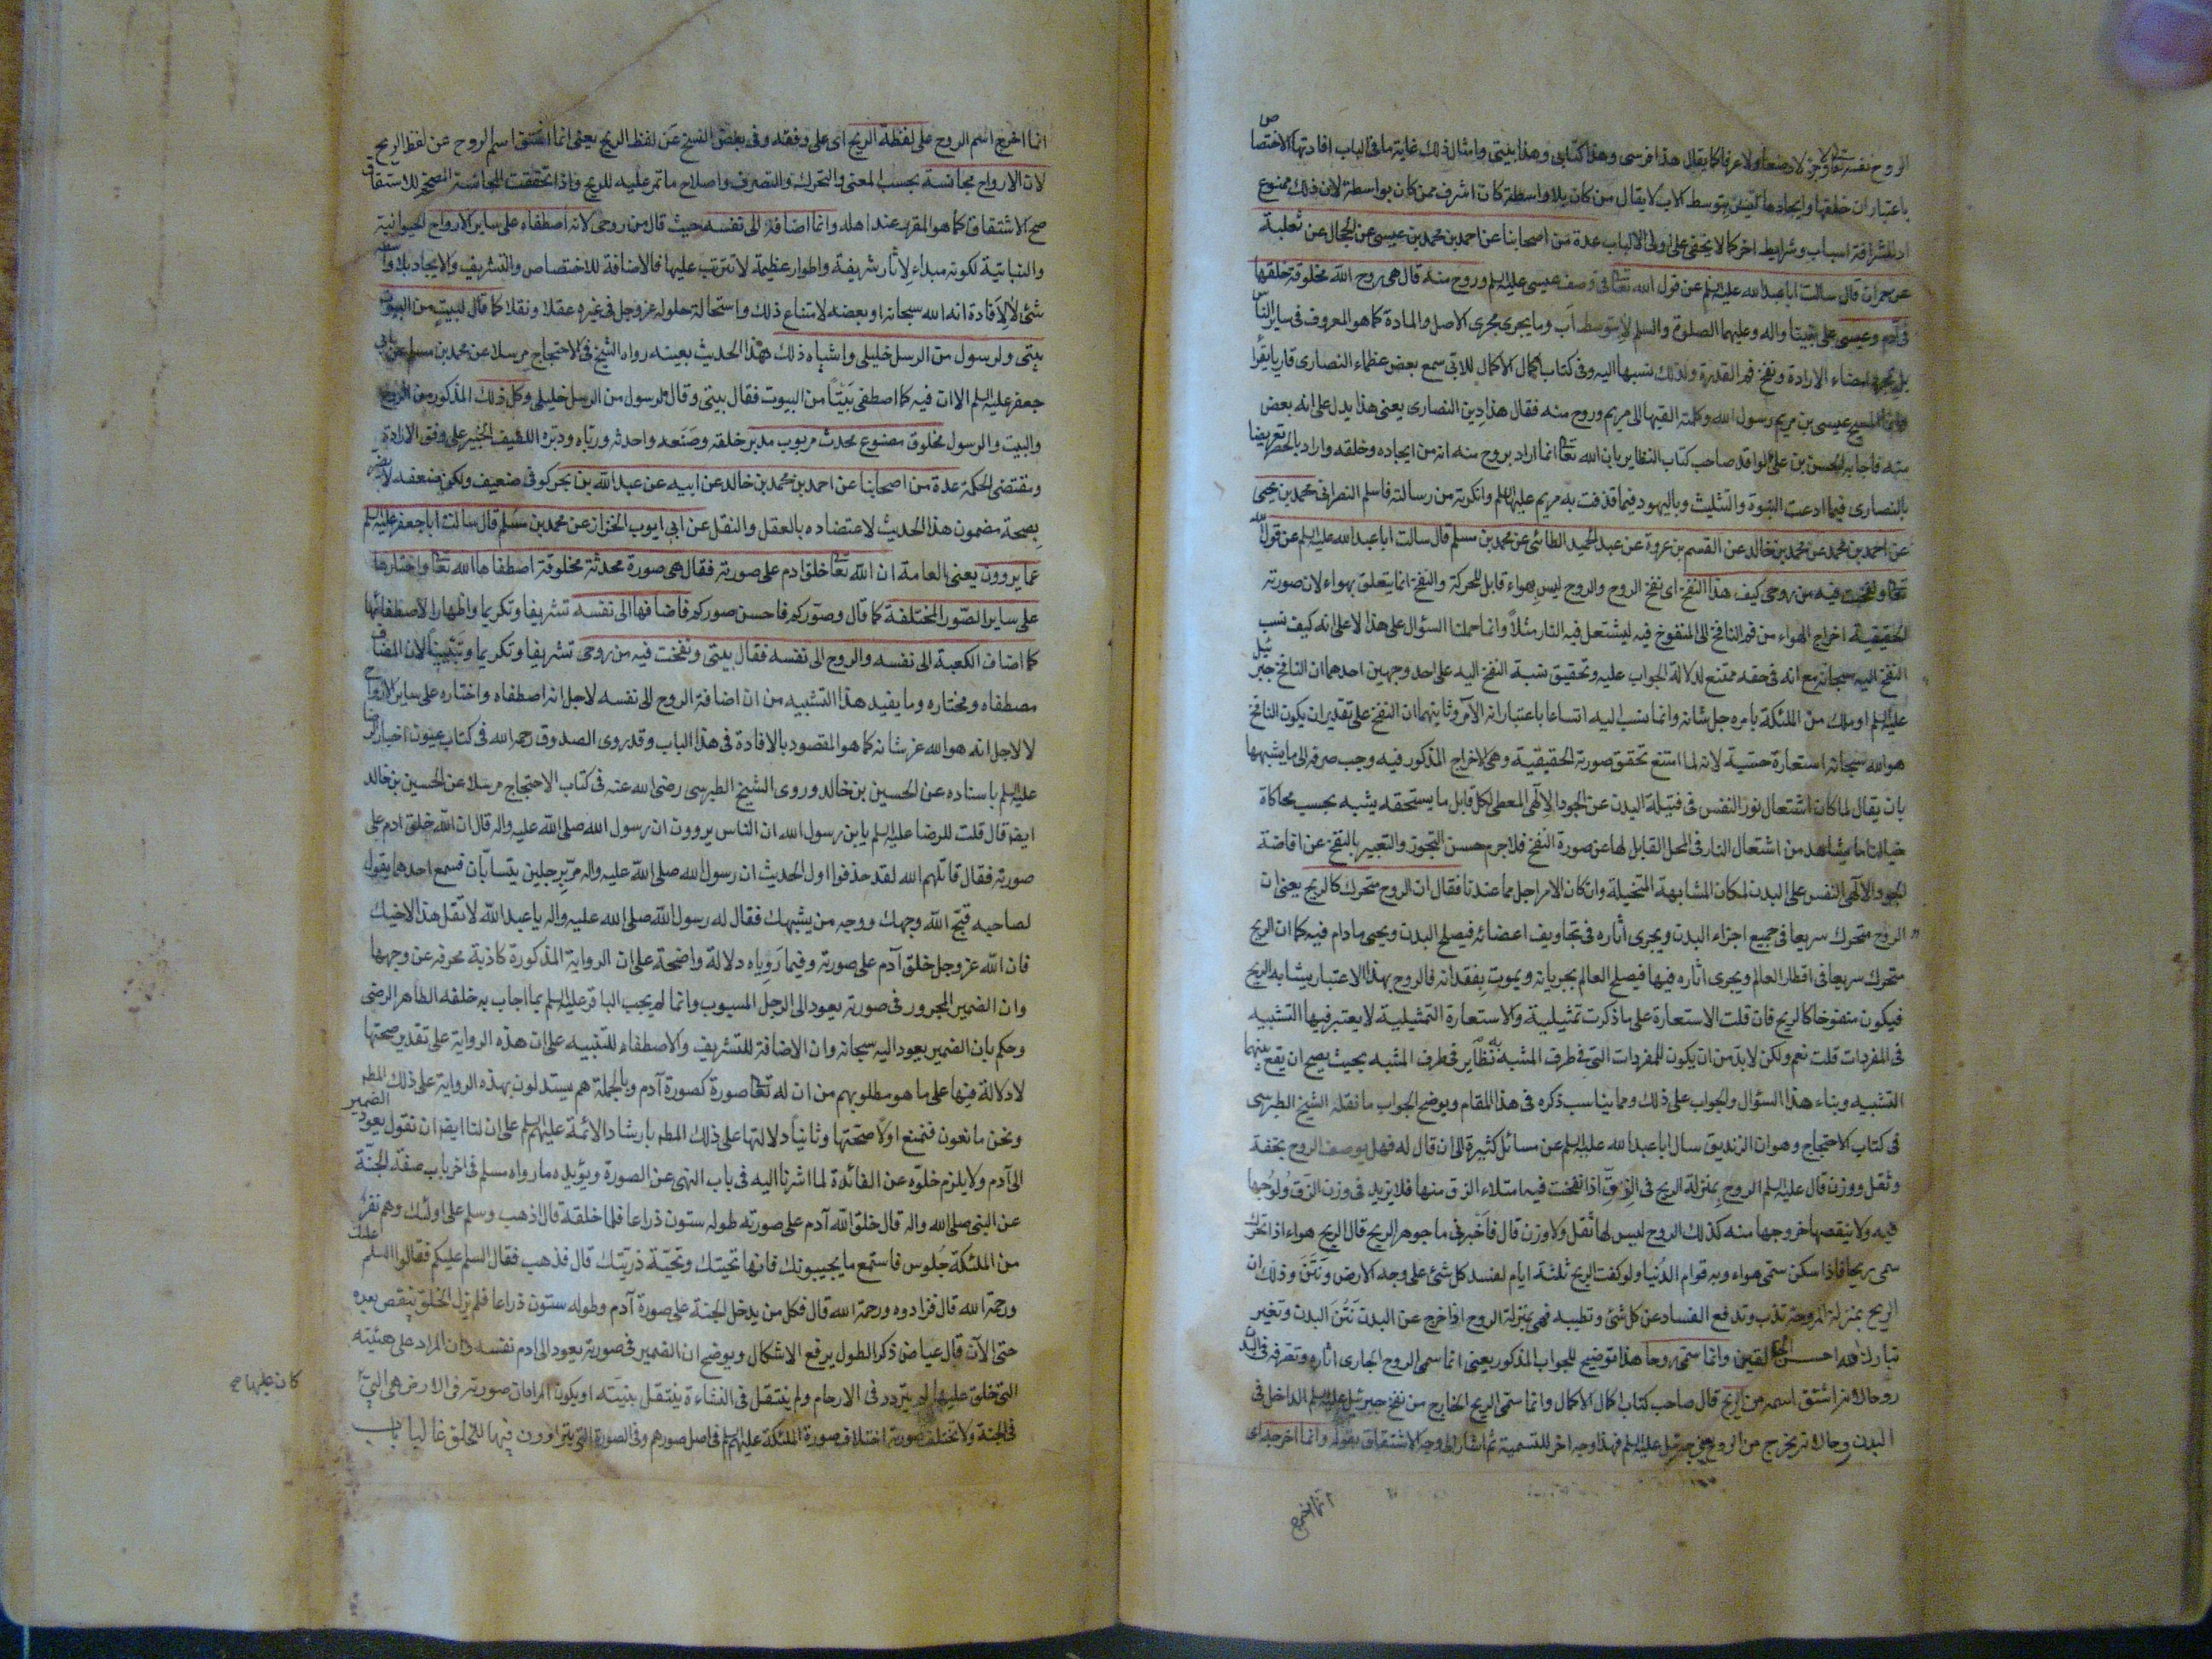 الروح نفسه تعالى لا وضعا ولا عرفا كما يقال هذا فرسى وهذا كتابى وهذا بيتى وامثال ذلك غاية ما فى الباب افادتها الاختصاص
باعتبار ان خلقها وايجادها ليس بتوسط الاب لا يقال من كان بلا واسطة كان اشرف ممن كان بواسطة لان ذلك ممنوع
اذ للشرافة اسباب وشرايط اخر كما لا يخفى على اولى الالباب عدة من اصحابنا عن احمد بن محمد بن عيسى عن الحجال عن ثعلبة
عن حمران قال سالت ابا عبدالله عليه السلم عن قول الله تعالى فى وصف عيسى عليه السلم وروح منه قال هى روح الله مخلوقة خلقها
فى آدم وعيسى على نبينا واله وعليهما الصلوة والسلم لا بتوسط اب وما يجرى مجرى الاصل والمادة كما هو المعروف فى ساير الناس
بل بمجرد امضاء الارادة ونفخ فم القدرة ولذلك نسبها اليه وفى كتاب اكمال الاكمال للابى سمع بعض عظماء النصارى قاريا يقرأ
انما المسيح عيسى بن مريم رسول الله وكلمته القيها الى مريم وروح منه فقال هذا دين النصارى يعنى هذا يدل على انه بعض
منه فاجابه الحسن بن على الواقد صاحب كتاب النظاير بان الله تعالى انما اراد بروح منه انه من ايجاده وخلقه واراد بالحصر تعريضا
بالنصارى فيما ادعت البنوة والتثليث وباليهود فيما قذفت به مريم عليها السلم وانكرته من رسالته فاسلم النصرانى محمد بن يحيى
عن احمد بن محمد عن محمد بن خالد عن القسم بن عروة عن عبد الحميد الطائى عن محمد بن مسلم قال سالت ابا عبدالله عليه السلم عن قول الله
تعالى ونفخت فيه من روحى كيف هذا النفخ اى نفخ الروح والروح ليس بهواء قابل للحركة والنفخ انما يتعلق بهواء لان صورته
الحقيقية اخراج الهواء من فم النافخ الى المنفوخ فيه ليشتعل فيه النار مثلاً وانما حملنا السؤال على هذا لا على انه كيف نسب
النفخ اليه سبحانه مع انه فى حقه ممتنع لدلالة الجواب عليه وتحقيق نسبة النفخ اليه على احد وجهين احدهما ان النافخ جبرئيل
عليه السلم او ملك من الملئكة بامره جل شانه وانما نسب اليه اتساعا باعتبار انه الآمر وثانيهما ان النفخ على تقدير ان يكون النافخ
هو الله سبحانه استعارة حسّية لانه لما امتنع تحقق صورته الحقيقية وهى الاخراج المذكور فيه وجب صرفه الى ما يشبهها
بان يقال لما كان اشتعال نور النفس فى فتيلة البدن عن الجود الالهى المعطى لكل قابل ما يستحقه يشبه بحسب محاكاة
خيالنا ما يشاهد من اشتعال النار فى المحل القابل لها عن صورة النفخ فلا جرم حسن التجوز والتعبير بالنفخ عن افاضة
الجود الالهى النفس على البدن لمكان المشابهة المتخيلة وان كان الامر اجل مما عندنا فقال ان الروح متحرك كالريح يعنى ان
الروح متحرك سريعا فى جميع اجزاء البدن ويجرى آثاره فى تجاويف اعضائه فيصلح البدن ويحيى مادام فيه كما ان الريح
متحرك سريعا فى اقطار العالم ويجرى آثاره فيها فيصلح العالم بجريانه ويموت بفقدانه فالروح بهذا الاعتبار يشابه الريح
فيكون منفوخا كالريح فان قلت الاستعارة على ما ذكرت تمثيلية والاستعارة التمثيلية لا يعتبر فيها التشبيه
فى المفردات قلت نعم ولكن لا بد من ان يكون للمفردات التى فى طرف المشبه به نظاير فى طرف المشبه بحيث يصح ان يقع بينهما
التشبيه وبناء هذا السؤال والجواب على ذلك ومما يناسب ذكره فى هذا المقام ويوضح الجواب ما نقله الشيخ الطبرسى
فى كتاب الاحتجاج وهو ان الزنديق سال ابا عبدالله عليه السلم عن مسائل كثيرة الى ان قال له فهل يوصف الروح بخفة
وثقل ووزن قال عليه السلم الروح بمنزلة الريح فى الزق اذا نفخت فيه امتلاء الزق منها فلا يزيد فى وزن الزق ولوجها
فيه ولا ينقصها خروجها منه كذلك الروح ليس لها ثقل ولا وزن قال فاخبرنى ما جوهر الريح قال الريح هواء اذا تحرك
سمى ريحا فاذا سكن سمى هواء وبه قوام الدنيا ولو كفت الريح ثلثة ايام لفسد كل شئ على وجه الارض ونتن وذلك ان
الريح بمنزلة المروحة تذب وتدفع الفساد عن كل شئ وتطيبه فهى بمنزلة الروح اذا خرج عن البدن نتن البدن وتغير
تبارك الله احسن الخالقين وانما سمى روحا هذا توضيح للجواب المذكور يعنى انما سمى الروح الجارى اثاره وتصرفه فى البدن
روحا لانه اشتق اسمه من الريح قال صاحب كتاب اكمال الاكمال وانما سمى الريح الخارج من نفخ جبرئيل عليه السلم الداخل فى
البدن روحا لانه يخرج من الروح يعنى جبرئيل عليه السلم فهذا وجه اخر للتسمية ثم اشار الى وجه الاشتقاق بقوله وانما اخرجه اى
انما اخرج
انما اخرج اسم الروح على لفظة الريح اى على وفقه وفى بعض النسخ عن لفظ الريح يعنى انما اشتق اسم الروح عن لفظ الريح
لان الارواح مجانسة بحسب المعنى والتحرك والتصرف واصلاح ما تمر عليه للريح واذا تحققت المجانسة المصححة للاشتقاق
صح الاشتقاق كما هو المقرر عند اهله وانما اضافه الى نفسه حيث قال من روحى لانه اصطفاه على ساير الارواح الحيوانية
والنباتية لكونه مبداء لآثار شريفة واطوار عظيمة لا تترتب عليها فالاضافة للاختصاص والتشريف والايجاد بلا واسطة
شئ لا لافادة انه الله سبحانه او بعضه لامتناع ذلك واستحالة حلوله عز وجل فى غيره عقلا ونقلا كما قال لبيت من البيوت
بيتى ولرسول من الرسل خليلى واشباه ذلك هذا الحديث بعينه رواه الشيخ فى الاحتجاج مرسلا عن محمد بن مسلم عن ابى
جعفر عليه السلم الا ان فيه كما اصطفى بيتاً من البيوت فقال بيتى وقال لرسول من الرسل خليلى وكل ذلك المذكور من الروح
والبيت والرسول مخلوق مصنوع محدث مربوب مدبر خلقه وصنعه واحدثه ورباه ودبره اللطيف الخبير على وفق الارادة
ومقتضى الحكمة عدة من اصحابنا عن احمد بن محمد بن خالد عن ابيه عن عبدالله بن بحر كوفى ضعيف ولكن ضعفه لا يضر
بصحة مضمون هذا الحديث لاعتضاده بالعقل والنقل عن ابى ايوب الخزاز عن محمد بن مسلم قال سالت ابا جعفر عليه السلم
عما يروون يعنى العامة ان الله تعالى خلق ادم على صورته فقال هى صورة محدثة مخلوقة اصطفاها الله تعالى واختارها
على ساير الصّور المختلفة كما قال وصوّركم فاحسن صوركم فاضافها الى نفسه تشريفا وتكريما واظهارا لاصطفائها
كما اضاف الكعبة الى نفسه والروح الى نفسه فقال بيتى ونفخت فيه من روحى تشريفا وتكريما وتنبيها لان المضاف
مصطفاه ومختاره وما يفيد هذا التشبيه من ان اضافة الروح الى نفسه لاجل انه اصطفاه واختاره على ساير الارواح
لا لاجل انه هو الله عز شانه كما هو المقصود بالافادة فى هذا الباب وقد روى الصدوق رحمه الله فى كتاب عيون اخبار الرضا
عليه السلم باسناده عن الحسين بن خالد وروى الشيخ الطبرسى رضى الله عنه فى كتاب الاحتجاج مرسلا عن الحسين بن خالد
ايضا قال قلت للرضا عليه السلم يا بن رسول الله ان الناس يروون ان رسول الله صلى الله عليه واله قال ان الله خلق ادم على
صورته فقال قاتلهم الله لقد حذفوا اول الحديث ان رسول الله صلى الله عليه واله مرّ برجلين يتسابّان فسمع احدهما يقول
لصاحبه قبّح الله وجهك ووجه من يشبهك فقال له رسول الله صلى الله عليه واله يا عبدالله لا تقل هذا لاخيك
فان الله عز وجل خلق آدم على صورته وفيما روياه دلالة واضحة على ان الرواية المذكورة كاذبة محرفة عن وجهها
وان الضمير المجرور فى صورته يعود الى الرجل المسبوب وانما لم يجب الباقر عليه السلم بما اجاب به خلفه الطاهر الرضى
وحكم بان الضمير يعود اليه سبحانه وان الاضافة للتشريف والاصطفاء للتنبيه على ان هذه الرواية على تقدير صحتها
لا دلالة فيها على ما هو مطلوبهم من ان له تعالى صورة كصورة آدم وبالجملة هم يستدلون بهذه الرواية على ذلك المطلب
ونحن مانعون فنمنع اولا صحتها وثانياً دلالتها على ذلك المطلب بارشاد الائمة عليهم السلم على ان لنا ايضا ان نقول يعود الضمير
الى آدم ولا يلزم خلوّه عن الفائدة لما اشرنا اليه فى باب النهى عن الصورة ويؤيده ما رواه مسلم فى اخر باب صفة الجنّة
عن النبى صلى الله واله قال خلق الله آدم على صورته طوله ستون ذراعا فلما خلقه قال اذهب وسلم على اولئك وهم نفر
من الملئكة جلوس فاستمع ما يجيبونك فانها تحيتك وتحيّة ذريّتك قال فذهب فقال السلم عليكم فقالوا السلم عليك
ورحمة الله قال فزادوه ورحمة الله قال فكل من يدخل الجنة على صورة آدم وطوله ستون ذراعا فلم يزل الخلق ينقص بعده
حتى الآن قال عياض ذكر الطول يرفع الاشكال ويوضح ان الضمير فى صورته يعود الى ادم نفسه وان المراد على هيئته
التى خلق عليها لم يتردد فى الارحام ولم ينتقل فى النشاءة ينتقل بنيته او يكون المراد ان صورته فى الارض هى التى
كان عليها صح
فى الجنة ولا تختلف صورته اختلاف صورة الملئكة عليهم السلم فى اصل صورهم وفى الصورة التى يتراوون فيها للخلق غالبا باب